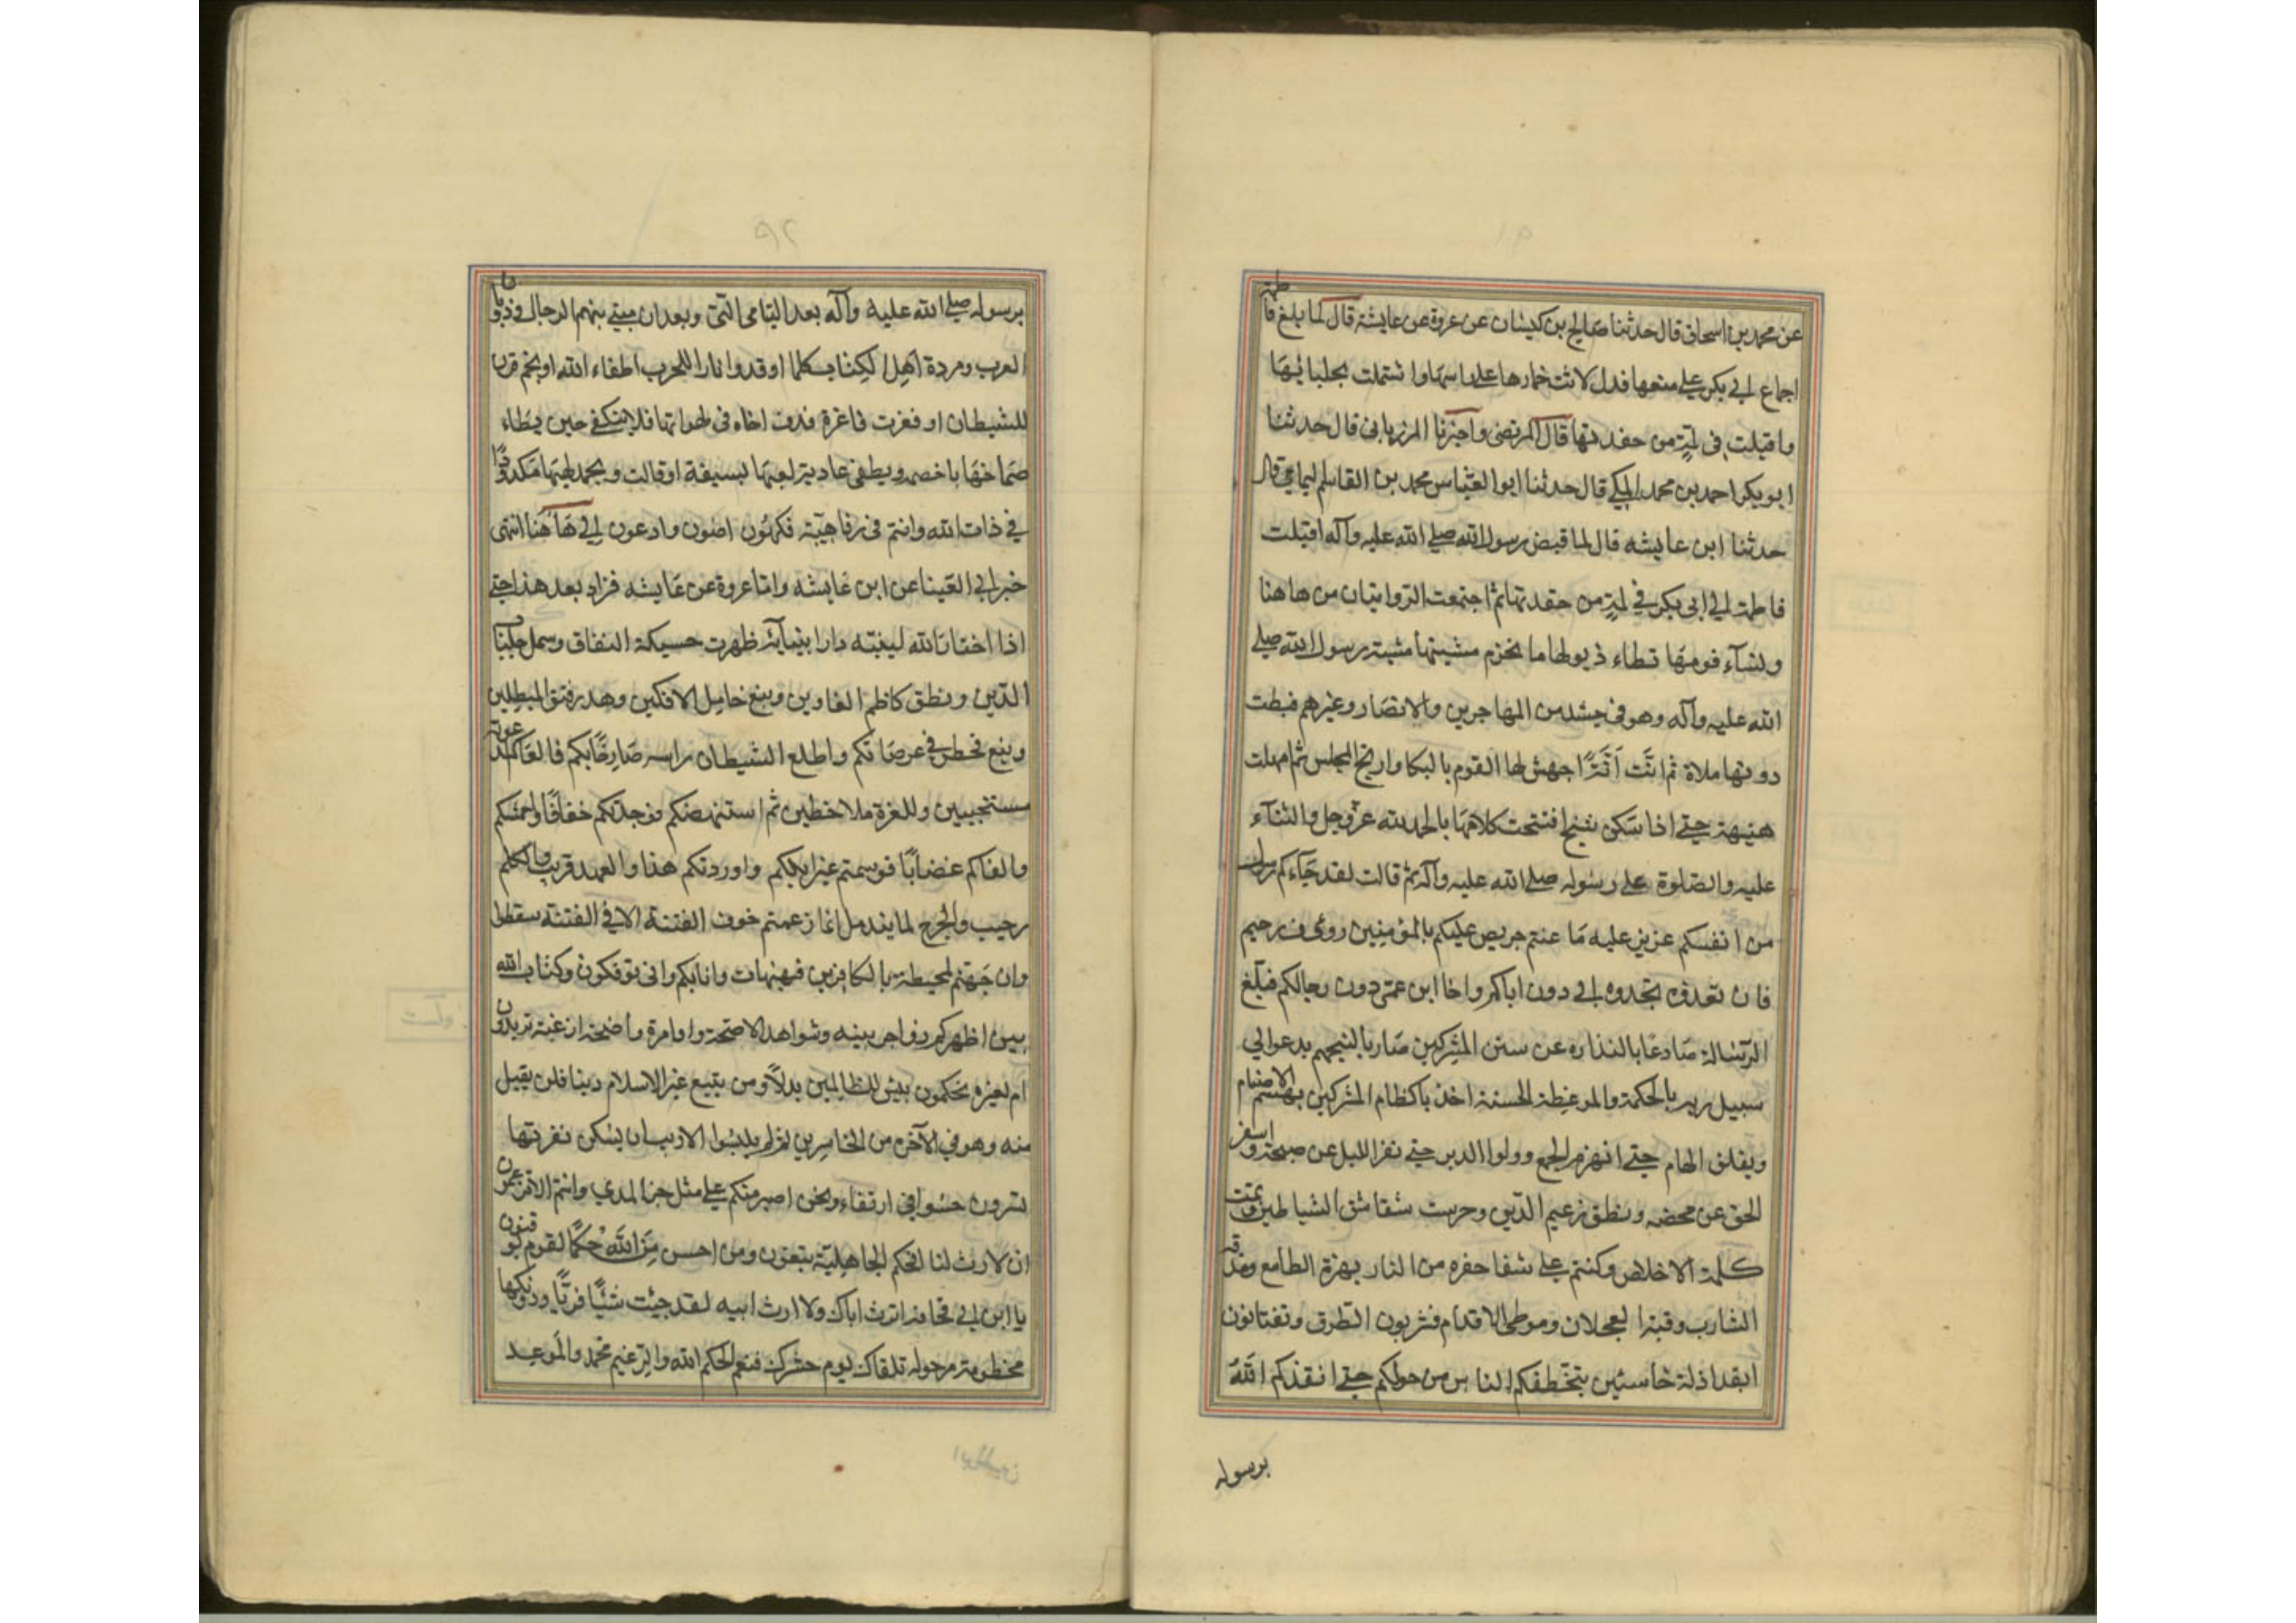 عن محمد بن اسحاق قال حدثنا صالح بن كيسان عن عروة عن عايشة قال لما بلغ فاطمة
اجماع ابي بكر على منعها فدك لاثت خمارها على راسها واشتملت بجلبابها
واقبلت في لمة من حفدتها قال المرتضى واخبرنا المرزباني قال حدثنا
ابو بكر احمد بن محمد المكي قال حدثنا ابو العباس محمد بن القاسم اليمامي قال
حدثنا ابن عايشه قال لما قبض رسول الله صلى الله عليه وآله اقبلت
فاطمة الى ابى بكر في لمة من حفدتها ثم اجتمعت الروايتان من هاهنا
ونسآء قومها تطاء ذيولها ما تخرم مشيتها مشية رسول الله صلى
الله عليه وآله وهو في حشد من المهاجرين والانصار وغيرهم فنيطت
دونها ملاة ثم انت انة اجهش لها القوم بالبكا وارتج المجلس ثم امهلت
هنيهة حتى اذا سكن نشيج افتتحت كلامها بالحمد لله عز وجل والثنآء
عليه والصلوة على رسوله صلى الله عليه وآله ثم قالت لقد جآءكم رسول
من انفسكم عزيز عليه ما عنتم حريص عليكم بالمؤمنين روف رحيم
فان تعزوه تجدوه ابى دون اباكم واخا ابن عمى دون رجالكم فبلغ
الرسالة صادعا بالنذاره عن سنن المشركين ضاربا لثبجهم يدعوا الى
سبيل ربه بالحكمة والموعظة الحسنة اخذ باكظام المشركين يهشم الاصنام
ويفلق الهام حتى انهزم الجمع وولوا الدبر حتى نفرا الليل عن صبحه واسفر
الحق عن محضه ونطق زعيم الدين وخرست شقاشق الشياطين وتمت
كلمة الاخلاص وكنتم على شفا حفره من النار نهزة الطامع ومذقة
الشارب وقبة العجلان وموطى الاقدام تشربون الطرق وتقتاتون
القد اذلة خاسئين يتخطفكم الناس من حولكم حتى انقذكم الله
برسوله
برسوله صلى الله عليه وآله بعد اللتيا والتى وبعد ان منى ببهم الرجال وذوبان
العرب ومردة اهل الكتاب كلما اوقدوا نارا للحرب اطفاء الله او نجم قرن
للشيطان او فغرت فاغرة قذف اخاه في لهواتها فلا ينكفى حين يطاء
صماخها باخمصه ويطفى عادية لهبها بسيفه او قالت ويخمد لهبها مكدودا
في ذات الله وانتم في رفاهية فكهون امنون وادعون الى هاهنا انتهى
خبر ابي العينا عن ابن عايشه واما عروة عن عايشه فزاد بعد هذا حتى
اذا اختار الله لنبيه دار انبيآئه ظهرت حسيكة النفاق وسمل جلباب
الدين ونطق كاظم الغاوين ونبغ خامل الافكين وهدر فنيق المبطلين
فخطر في عرصاتكم واطلع الشيطان راسه صارخا بكم فالفاكم لدعوته
مستجيبين وللغرة ملاحظين ثم استنهضكم فوجدكم خفافا واحمشكم
والفاكم غضابا فوسمتم غير ابلكم واوردتكم هذا والعهد قريب والكلم
رحيب والجرح لما يندمل انما زعمتم خوف الفتنة الا في الفتنة سقطوا
وان جهنم لمحيطة بالكافرين فهيهات وانا بكم وانى توفكون وكتاب الله
بين اظهركم زواجر بينه وشواهد لاصحة واوامرة واضحة ارغبة تريدون
ام لغيره تحكمون بئس للظالمين بدلا ومن يتبع غير الاسلام دينا فلن يقبل
منه وهو في الآخرة من الخاسرين ثم لم يلبثوا الا ريث ان يسكن نفرتها
تسرون حسوا في ارتقاء ونحن اصبر منكم على مثل حز المدي وانتم الان تزعمون
ان لا ارث لنا افحكم الجاهلية يتبغون ومن احسن من الله حكما لقوم يوقنون
يا ابن ابي قحافة اترث اباك ولا ارث ابيه لقد جئت شيئا فريا ودونكها
مخطومة مرحوله تلقاك يوم حشرك فنعم الحكم الله والزعيم محمد والموعد